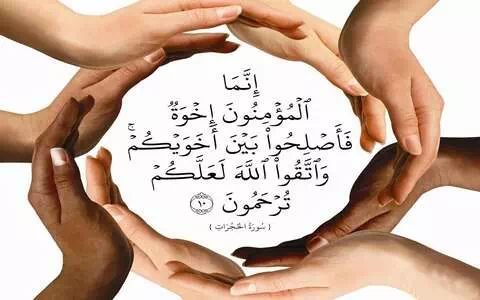 إِنَّمَا
الْمُؤْمِنُونَ إِخْوَةٌ
فَأَصْلِحُوا۟ بَيْنَ أَخَوَيْكُمْ ۚ
وَاتَّقُوا۟ اللَّهَ لَعَلَّكُمْ
تُرْحَمُونَ ١٠
﴿ سُورَةُ الحُجُرَاتِ ﴾